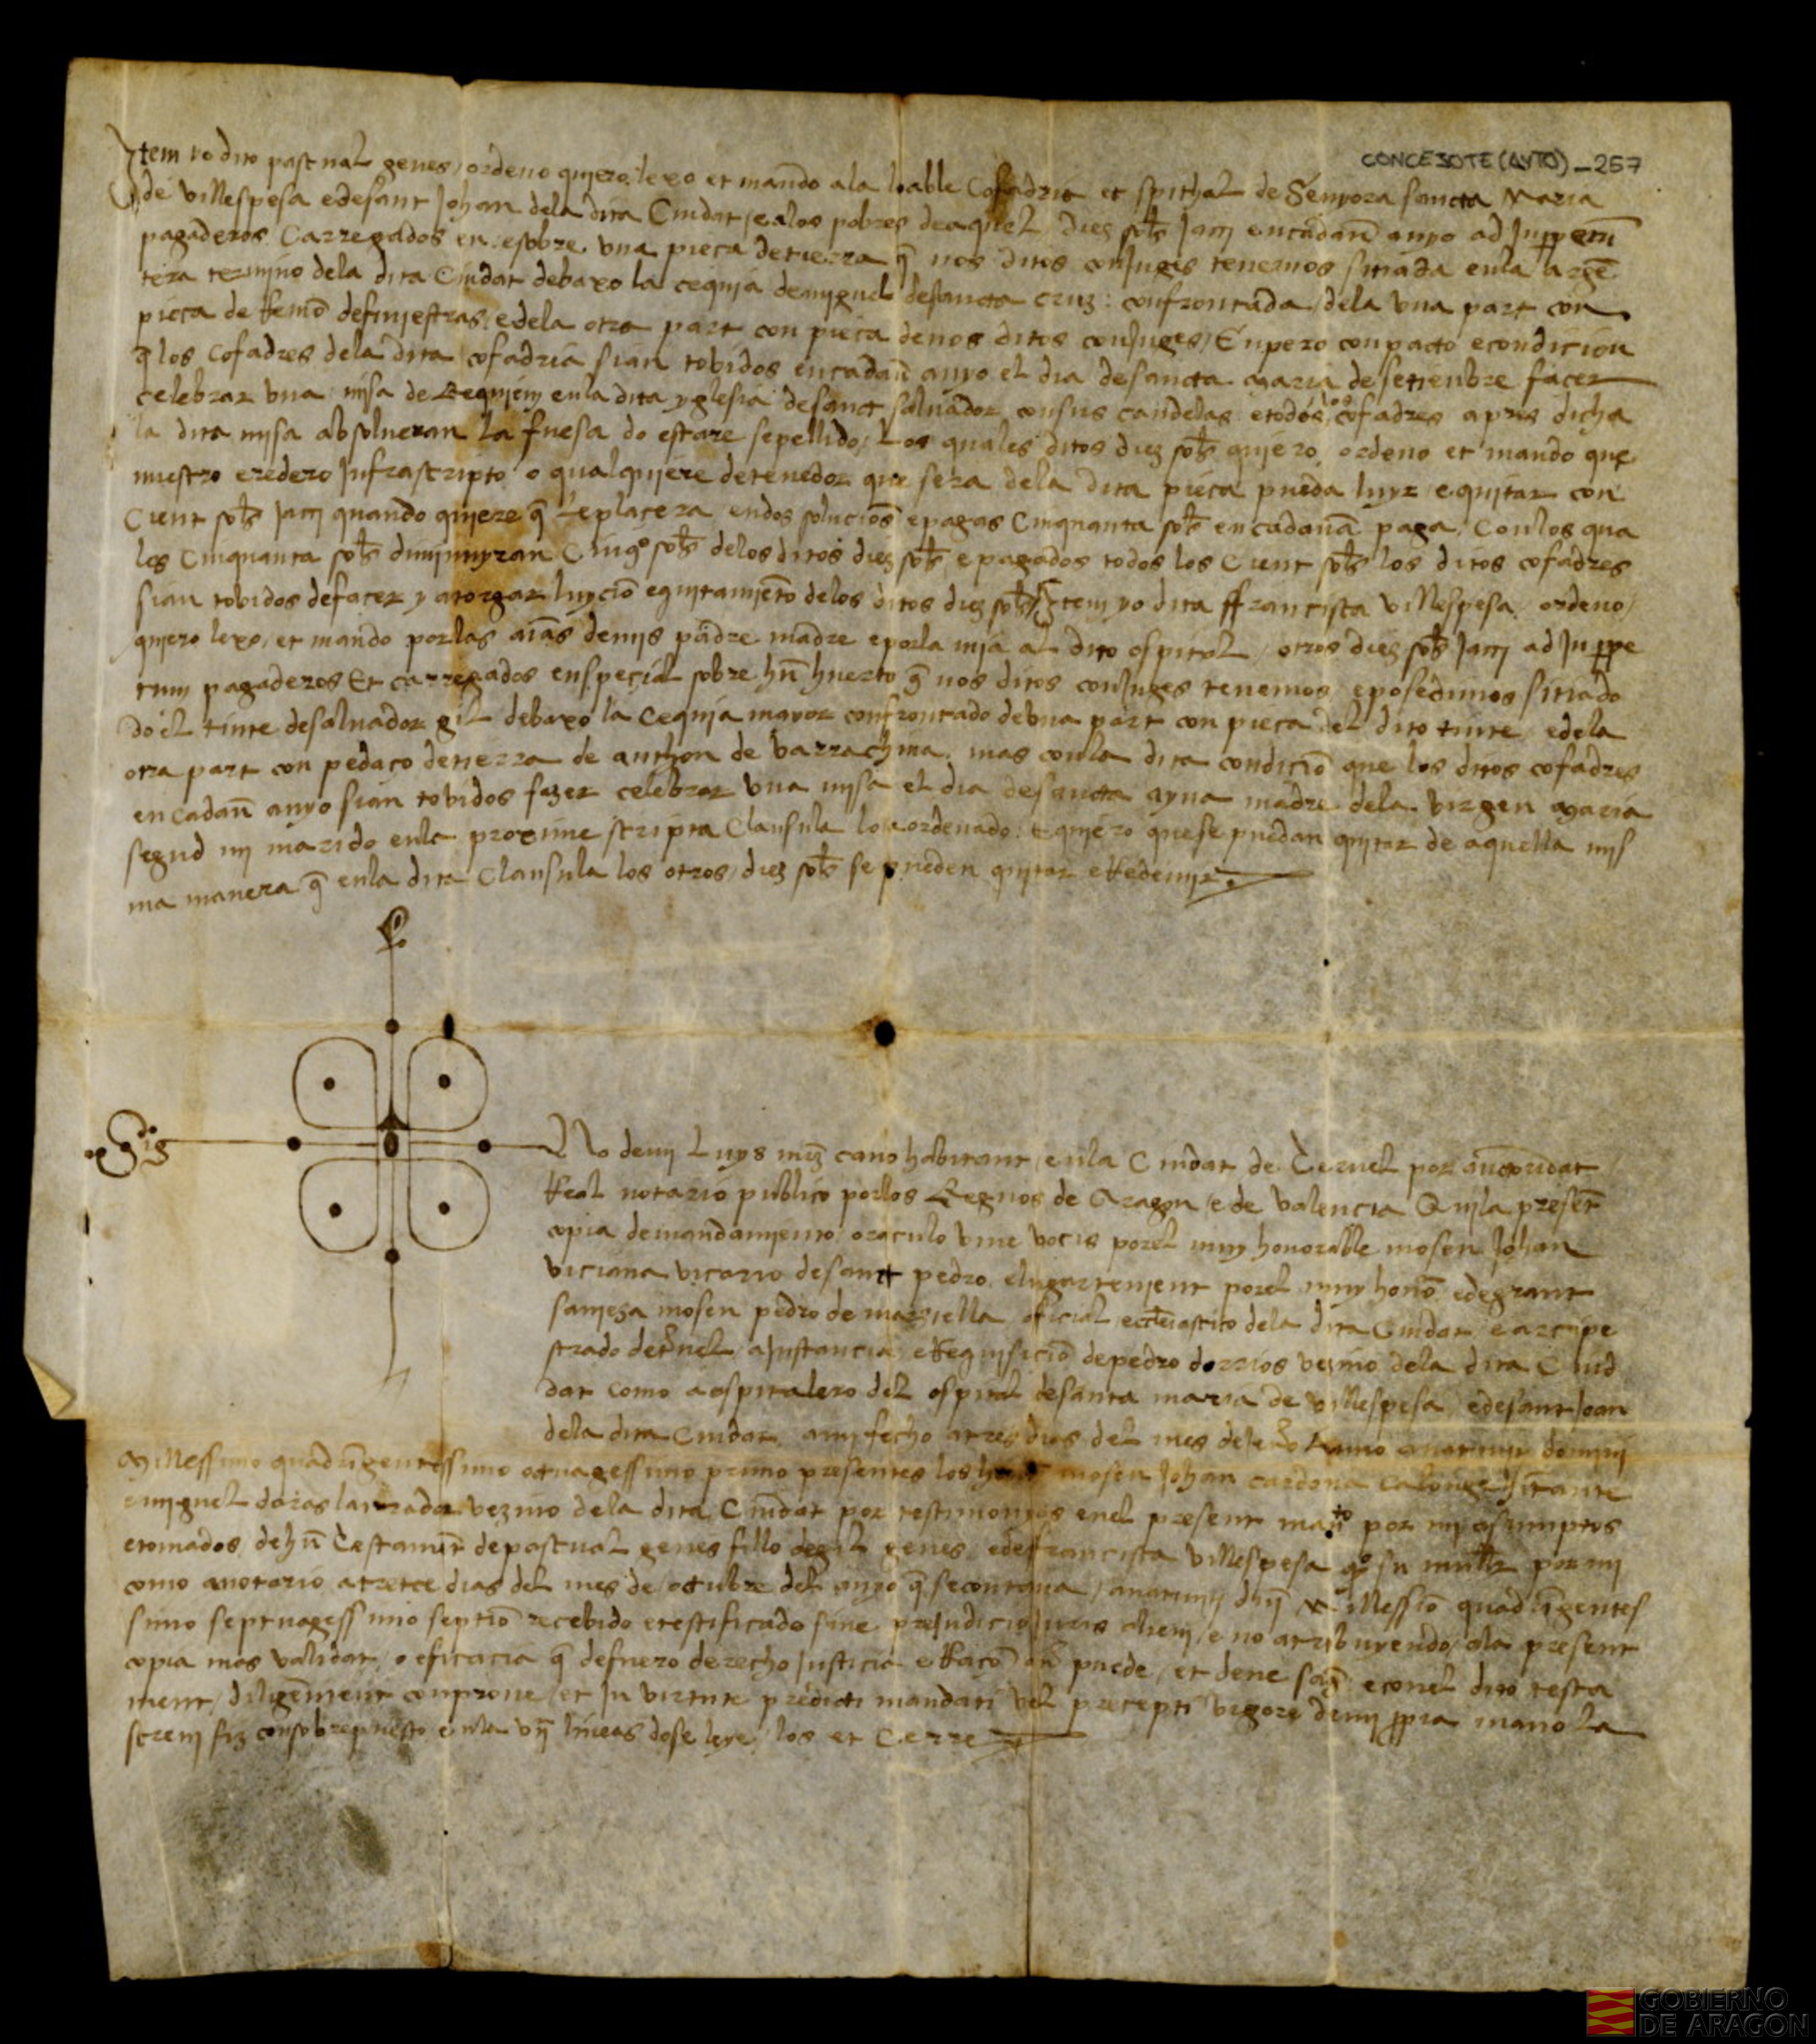 CONCEJOTE (AYTO) - 257
Item yo dito pascual genes, ordeno quiero lexo et mando a la loable Cofadria et spithal de Senyora sancta Maria
de villespesa e de sant Johan dela dita Ciudat, e a los pobres de aquel, diez sols Jacc en cadaun anyo ad Inppetuu
pagaderos Carregados en, e sobre, una pieca de tierra q nos ditos conjuges tenemos sitiada en la argen
tera termino dela dita Ciudat debaxo la cequia de miguel de sancta cruz: confrontada, dela una part con
pieca de Remo definiestras, e dela otra part con pieca de nos ditos conjuges, Enpero con pacto e condicion
q los Cofadres dela dita cofadria sian tobidos en cadau anyo el dia de sancta maria de setienbre facer
celebrar una misa de Requiem en la dita yglesia de sanct saluador con sus candelas: e todos los cofadres apres dicha
la dita misa absolueran la fuesa do estare sepellido, Los quales ditos diez sols quiero, ordeno et mando que
nuestro eredero Infrascripto o qualquiere detenedor que sera dela dita pieca pueda luyr e quitar con
Cient sols Jacc quando quiere q le placera en dos solucios e pagas Cinquanta sols en cadauna paga, Con los qua
les Cinquanta sols diminuyran Cinqo sols delos ditos diez sols, e pagados todos los Cient sols los ditos cofadres
sian tobidos de facer y atorgar luycio e quitamieto delos ditos diez sols, Item yo dita ffrancisca villespesa, ordeno,
quiero lexo, et mando por las aias de mis padre madre e por la mia al dito ospital, otros diez sols Jacc ad Inppe
tuum pagaderos Et carregados en special sobre hu huerto q nos ditos conjuges tenemos, e posedimos sitiado
do el tinte de saluador gil debaxo la Cequia mayor confrontado de una part con pieca del dito tinte, e dela
otra part con pedaco de tierra de anthon de varrachina. mas con la dita condicio que los ditos cofadres
en cadau anyo sian tobidos fazer celebrar una misa el dia de sancta ayna madre dela virgen maria
segud mi marido en la proxime scripta Clausula lo a ordenado. E quiero que se puedan quitar de aquella mis
ma manera q en la dita Clausula los otros, diez sols se pueden quitar e Redemir.
Sig
No de mi Luys mrz cano habitant, en la Ciudat de Teruel por auctoridat
Real notario publico por los Regnos de Aragon, e de valencia Qui la present
copia de mandamiento, oraculo viue vocis por el muy honorable mosen Johan
viciana vicario de sant pedro, e lugartenient por el muy hono, e de grant
sauieza mosen pedro de marziella, oficial ecclesiastico dela dita Ciudat, e arcipe
strado de Teruel, a Instancia, e Requisicio de pedro dorrios vezino dela dita Ciud
dat como a ospitalero del ospital de santa maria de villespesa, e de sant Joan
dela dita Ciudat, a mi fecho a tres dias del mes de anno a natiuit domini
Millessimo quadringentessimo octuagessimo primo presentes los mosen Johan cardona calonge
e miguel doras laurador vezino dela dita Ciudat por testimonyos en el present man^to por mi asumptos
e tomados, de hu Testament de pascual genes fillo de gil genes, e de francisca villespesa qo su muller por mi
como a notario a tretce dias del mes de octubre del anyo q se contaua, a natiuit dni Millessio quadringentes
simo septuagessimo septio recebido e testificado sine prejudicio Juris alieni, e no atribuyendo, ala present
copia mas validat, o eficacia q de fuero derecho Justicia e Raco puede, et deue e con el dito testa
ment, diligement comproue, et In virtute predicti mandati vel precepti vigore de mi ppia mano la
screui fiz con sobrepuesto en la vii lineas do se leye, los et Cerre
GOBIERNO
DE ARAGON